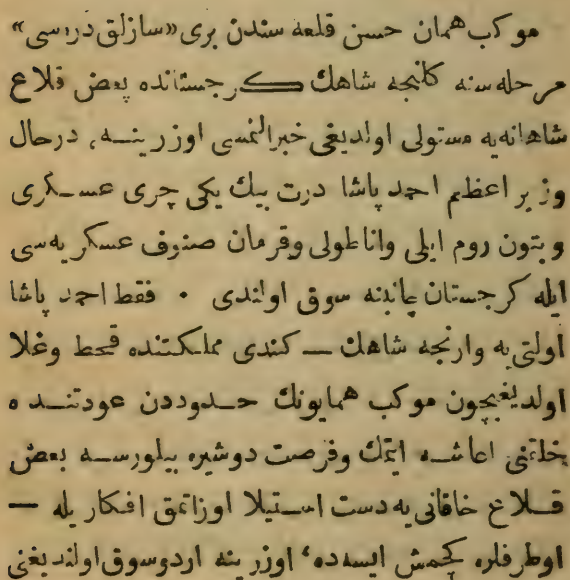 موكب همان حسن قلعه سندن برى «سازلق دره سى»
مرحله سنه كلنجه شاهك كرجستانده بعض قلاع
شاهانه يه مستولى اولديغى خبر النمسى اوزرينه، درحال
وزير اعظم احمد پاشا درت بيك يكى چرى عسكرى
وبتون روم ايلى واناطولى وقرمان صنوف عسكريه سى
ايله كرجستان جانبنه سوق اولندى . فقط احمد پاشا
اولتى يه وارنجه شاهك — كندى مملكتنده قحط وغلا
اولديغيچون موكب همايونك حدوددن عودتنده
خلقنى اعاشه ايتمك وفرصت دوشيره بيلورسه بعض
قلاع خاقانى يه دست استيلا اوزاتمق افكاريله —
اوطرفلره كچمش ايسه ده، اوزرينه اردو سوق اولنديغنى